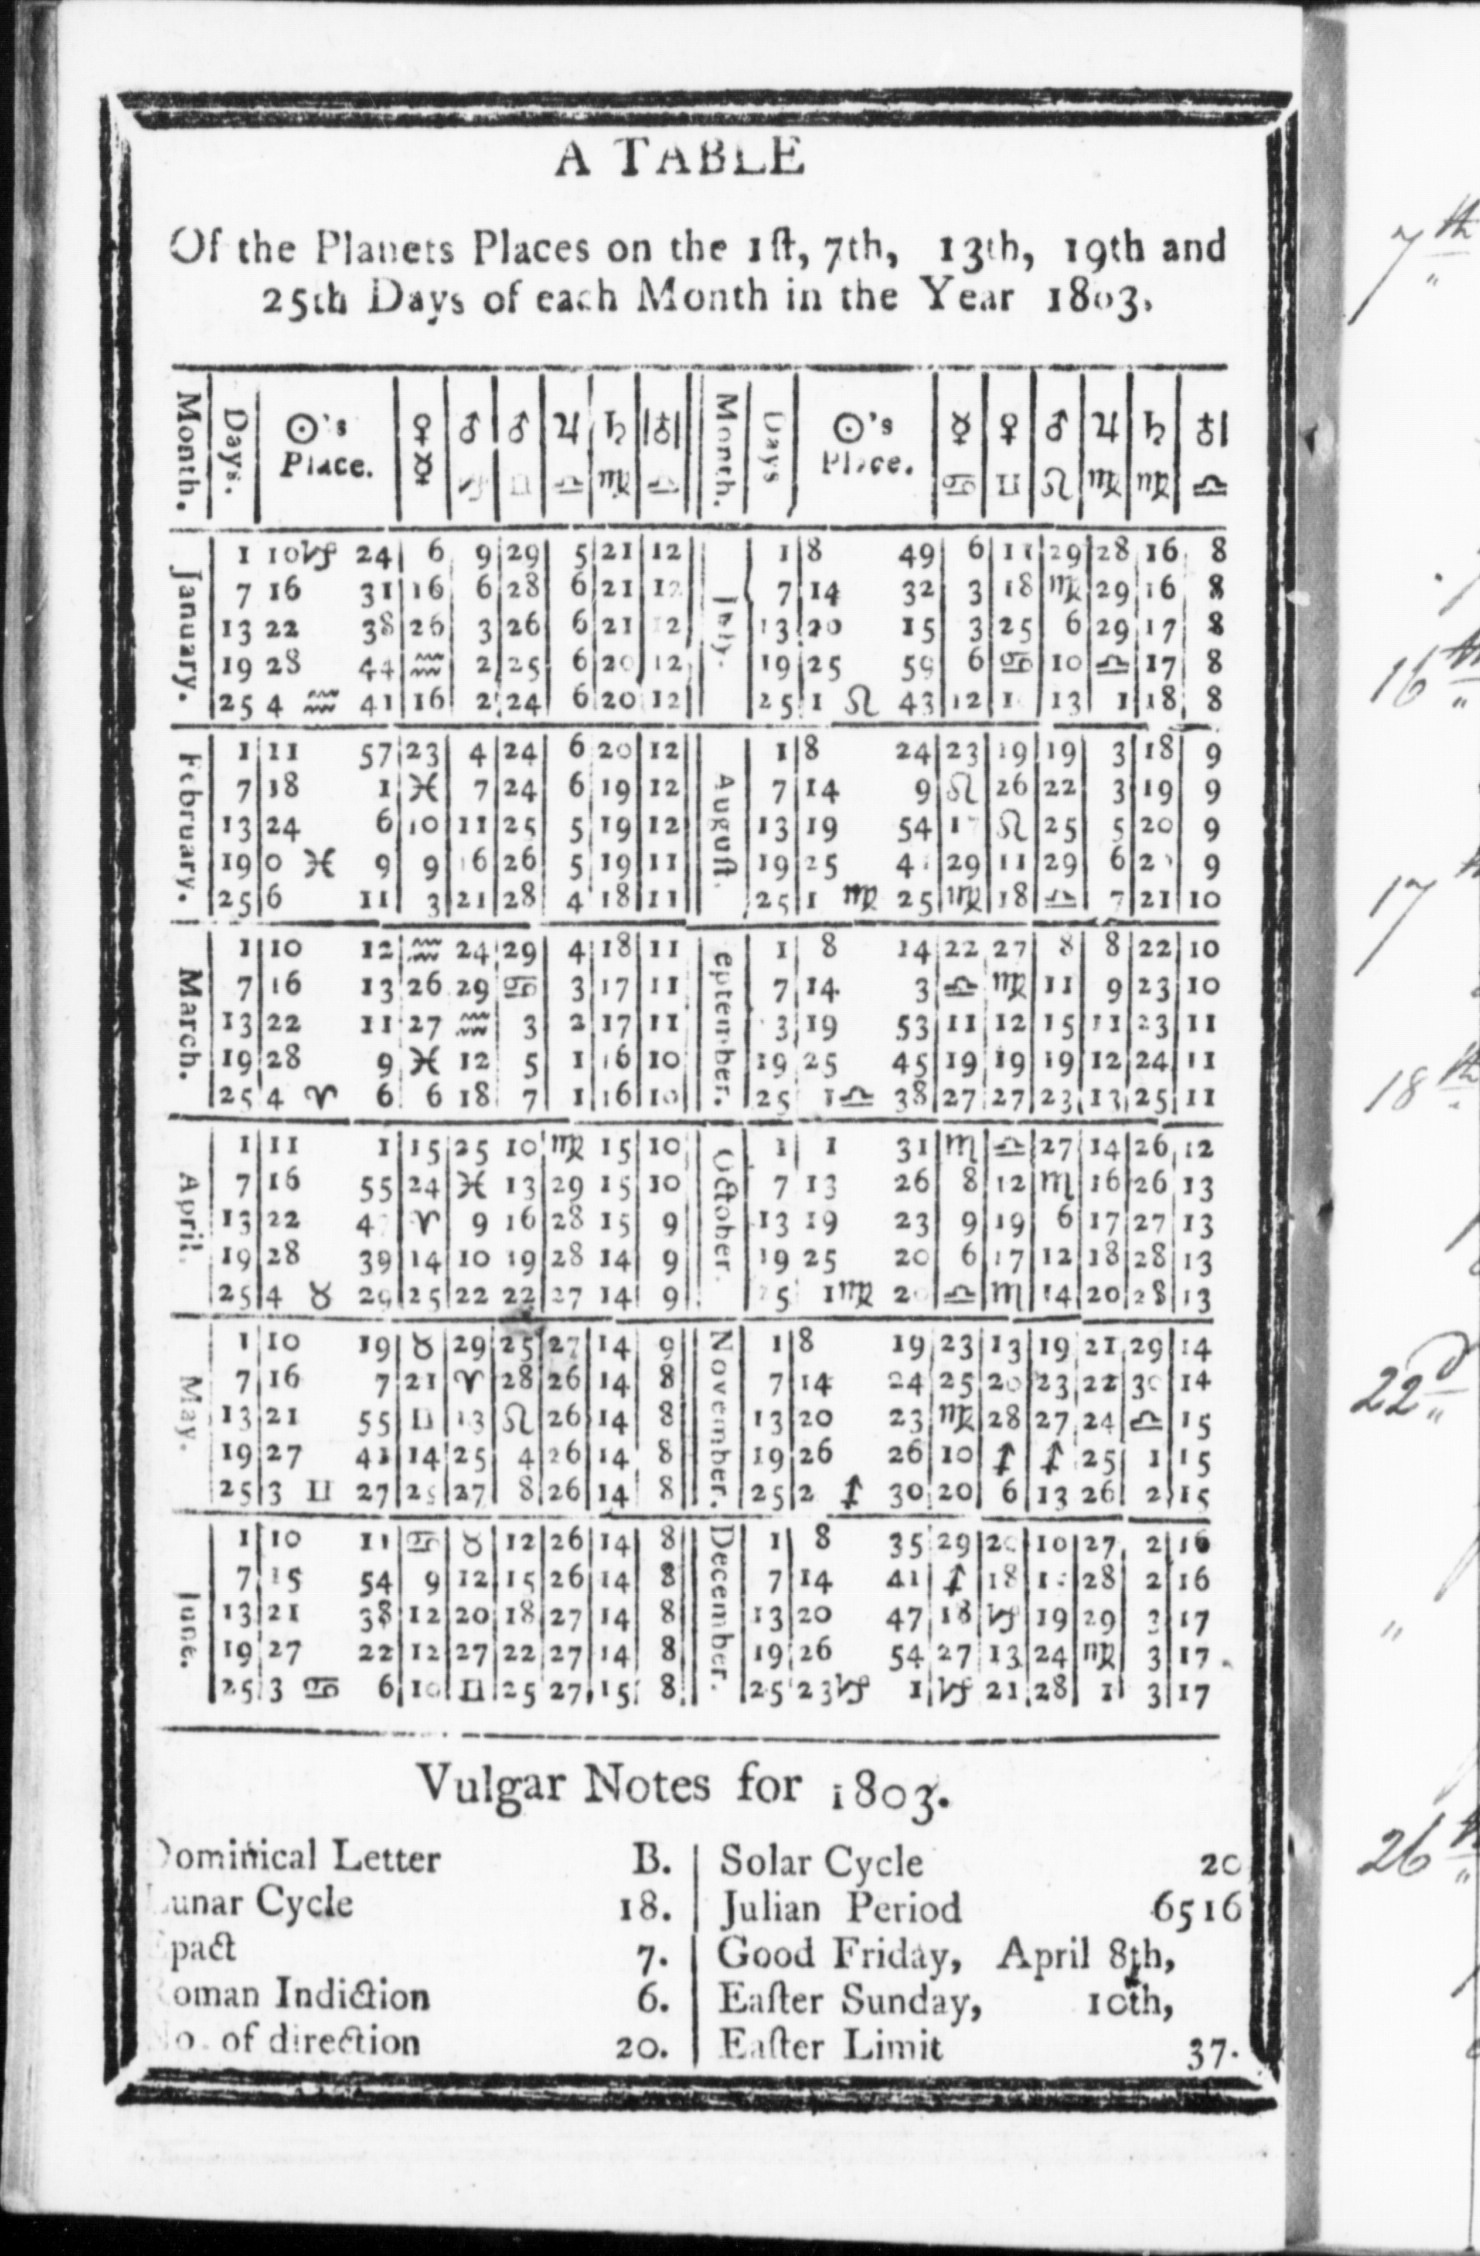 A TABLE
Of the Planets Places on the 1ſt, 7th, 13th, 19th and
25th Days of each Month in the Year 1803.
Month. Days. ☉'s Place. ♀ ☿ ♂ ♑ ♂ ♊ ♃ ♎ ♄ ♍ ♁ ♎ Month. Days ☉'s Place. ☿ ♋ ♀ ♊ ♂ ♌ ♃ ♍ ♄ ♍ ♁ ♎
January. July.
1 10♑ 24 6 9 29 5 21 12 1 8 49 6 11 29 28 16 8
7 16 31 16 6 28 6 21 12 7 14 32 3 18 ♍ 29 16 8
13 22 38 26 3 26 6 21 12 13 20 15 3 25 6 29 17 8
19 28 44 ♒ 2 25 6 20 12 19 25 59 6 ♋ 10 ♎ 17 8
25 4 ♒ 41 16 2 24 6 20 12 25 1 ♌ 43 12 13 1 18 8
February. Auguſt.
1 11 57 23 4 24 6 20 12 1 8 24 23 19 19 3 18 9
7 18 1 ♓ 7 24 6 19 12 7 14 9 ♌ 26 22 3 19 9
13 24 6 10 11 25 5 19 12 13 19 54 17 ♌ 25 5 20 9
19 0 ♓ 9 9 16 26 5 19 11 19 25 29 11 29 6 9
25 6 11 3 21 28 4 18 11 25 1 ♍ 25 ♍ 18 ♎ 7 21 10
March. eptember.
1 10 12 ♒ 24 29 4 18 11 1 8 14 22 27 8 8 22 10
7 16 13 26 29 ♋ 3 17 11 7 14 3 ♎ ♍ 11 9 23 10
13 22 11 27 ♒ 3 2 17 11 3 19 53 11 12 15 11 23 11
19 28 9 ♓ 12 5 1 16 10 19 25 45 19 19 19 12 24 11
25 4 ♈ 6 6 18 7 1 16 10 25 1♎ 38 27 27 23 13 25 11
April. October.
1 11 1 15 25 10 ♍ 15 10 1 1 31 ♏ ♎ 27 14 26 12
7 16 55 24 ♓ 13 29 15 10 7 13 26 8 12 ♏ 16 26 13
13 22 47 ♈ 9 16 28 15 9 13 19 23 9 19 6 17 27 13
19 28 39 14 10 19 28 14 9 19 25 20 6 17 12 18 28 13
25 4 ♉ 29 25 22 22 27 14 9 5 1♍ 20 ♎ ♏ 14 20 28 13
May. November.
1 10 19 ♉ 29 25 27 14 9 1 8 19 23 13 19 21 29 14
7 16 7 21 ♈ 28 26 14 8 7 14 24 25 20 23 22 30 14
13 21 55 ♊ 13 ♌ 26 14 8 13 20 23 ♍ 28 27 24 ♎ 15
19 27 41 14 25 4 26 14 8 19 26 26 10 ♐ ♐ 25 1 15
25 3 ♊ 27 25 27 8 26 14 8 25 2 ♐ 30 20 6 13 26 2 15
June. December.
1 10 11 ♋ ♉ 12 26 14 8 1 8 35 29 20 10 27 2 16
7 15 54 9 12 15 26 14 8 7 14 41 ♐ 18 28 2 16
13 21 38 12 20 18 27 14 8 13 20 47 18 ♑ 19 29 3 17
19 27 22 12 27 22 27 14 8 19 26 54 27 13 24 ♍ 3 17
25 3 ♋ 6 10 ♊ 25 27 15 8 25 23♑ 1 ♑ 21 28 1 3 17
Vulgar Notes for 1803.
Dominical Letter B. Solar Cycle 20
Lunar Cycle 18. Julian Period 6516
Epact 7. Good Friday, April 8th,
Roman Indiction 6. Eaſter Sunday, 10th,
No. of direction 20. Eaſter Limit 37.
7th
16th
17
18th
22d
26th